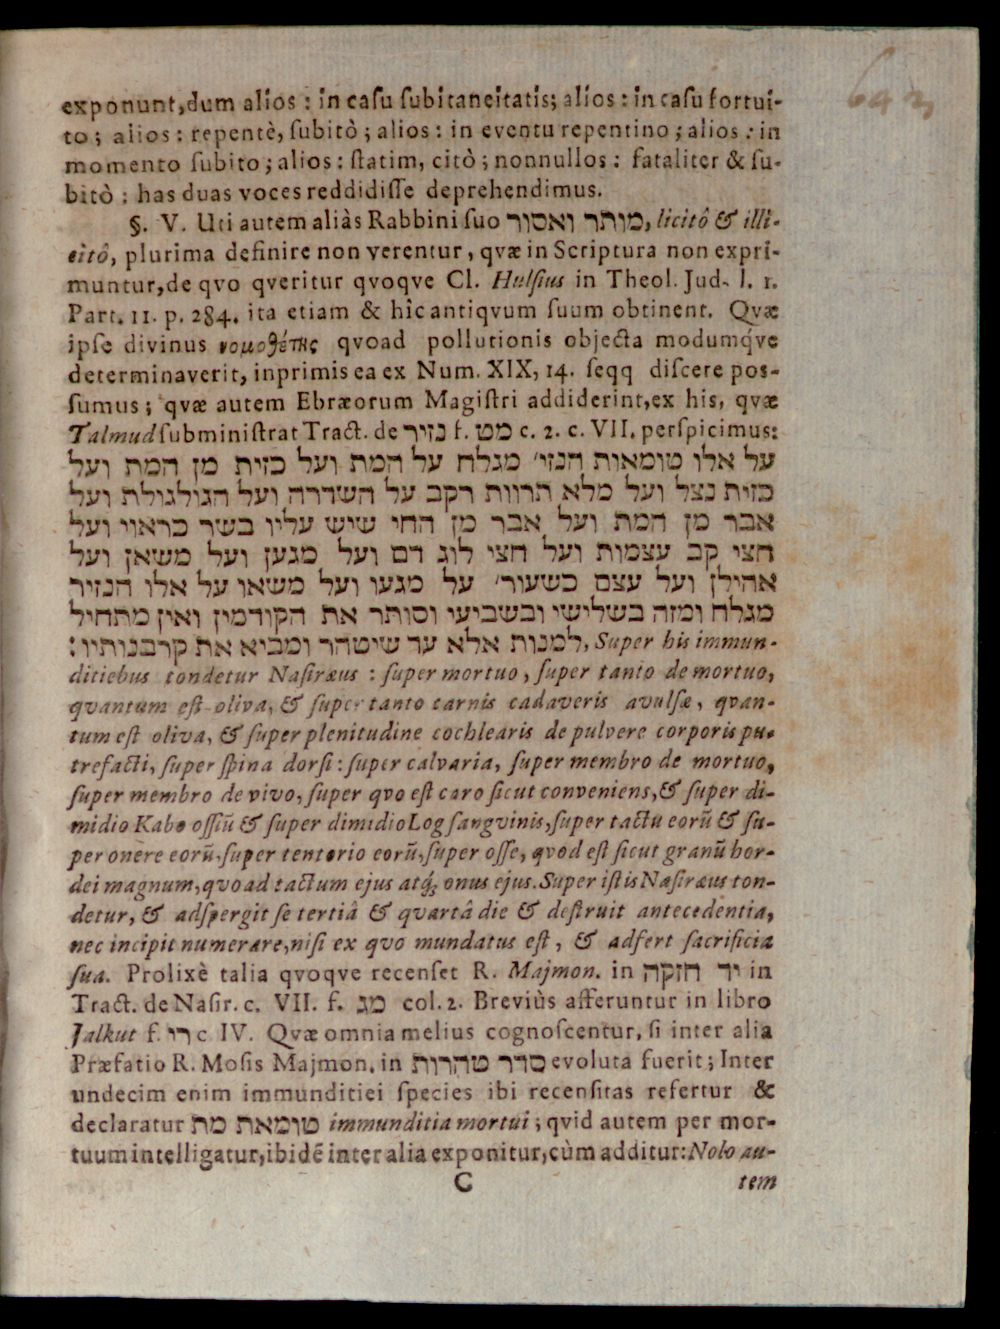 642,
exponunt, dum alios : in casu subitaneitatis; alios : in casu fortui-
to ; alios : repentè, subitò ; alios : in eventu repentino ; alios : in
momento subito ; alios : statim, citò ; nonnullos : fataliter & su-
bitò : has duas voces reddidisse deprehendimus.
§. V. Uti autem aliàs Rabbini suo מותר ואסור, licitô & illi-
citô, plurima definire non verentur, qvæ in Scriptura non expri-
muntur, de qvo qveritur qvoqve Cl. Hulsius in Theol. Jud. l. 1.
Part. 11. p. 284. ita etiam & hîc antiqvum suum obtinent. Qvæ
ipse divinus νομοθέτης qvoad pollutionis objecta modumq́ve
determinaverit, inprimis ea ex Num. XIX, 14. seqq discere pos-
sumus ; qvæ autem Ebræorum Magistri addiderint, ex his, qvæ
Talmud subministrat Tract. de נזיר f. מט c. 2. c. VII. perspicimus:
על אלו טומאות הנזי׳ מגלח על המת ועל כזית מן המת ועל
כזית נצל ועל מלא תרווח רקב על השדרה ועל הגולגולת ועל
אבר מן המת ועל אבר מן החי שיש עליו בשר כראוי ועל
חצי קב עצמות ועל חצי לוג דם ועל מגען ועל משאן ועל
אהילן ועל עצם כשעור׳ על מגעו ועל משאו על אלו הנזיר
מגלח ומזה בשלישי ובשביעי וסותר את הקודמין ואין מתחיל
למנות אלא עד שיטהר ומביא את קרבנותיו:, Super his immun-
ditiebus tondetur Nasiræus : super mortuo, super tanto de mortuo,
qvantum est oliva, & super tanto carnis cadaveris avulsæ, qvan-
tum est oliva, & super plenitudine cochlearis de pulvere corporis pu-
trefacti, super spina dorsi : super calvaria, super membro de mortuo,
super membro de vivo, super qvo est caro sicut conveniens, & super di-
midio Kabo ossiū & super dimidio Log sangvinis, super tactu eorū & su-
per onere eorū, super tentorio eorū, super osse, qvod est sicut granū hor-
dei magnum, qvoad tactum ejus atq́; onus ejus. Super istis Nasiræus ton-
detur, & adspergit se tertiâ & qvartâ die & destruit antecedentia,
nec incipit numerare, nisi ex qvo mundatus est, & adfert sacrificia
sua. Prolixè talia qvoqve recenset R. Majmon. in יד חזקה in
Tract. de Nasir. c. VII. f. מג col. 2. Breviùs afferuntur in libro
Jalkut f. רי c IV. Qvæ omnia melius cognoscentur, si inter alia
Præfatio R. Mosis Majmon. in סדר טהרות evoluta fuerit ; Inter
undecim enim immunditiei species ibi recensitas refertur &
declaratur טומאת מת immunditia mortui ; qvid autem per mor-
tuum intelligatur, ibidē inter alia exponitur, cùm additur: Nolo au-
C tem